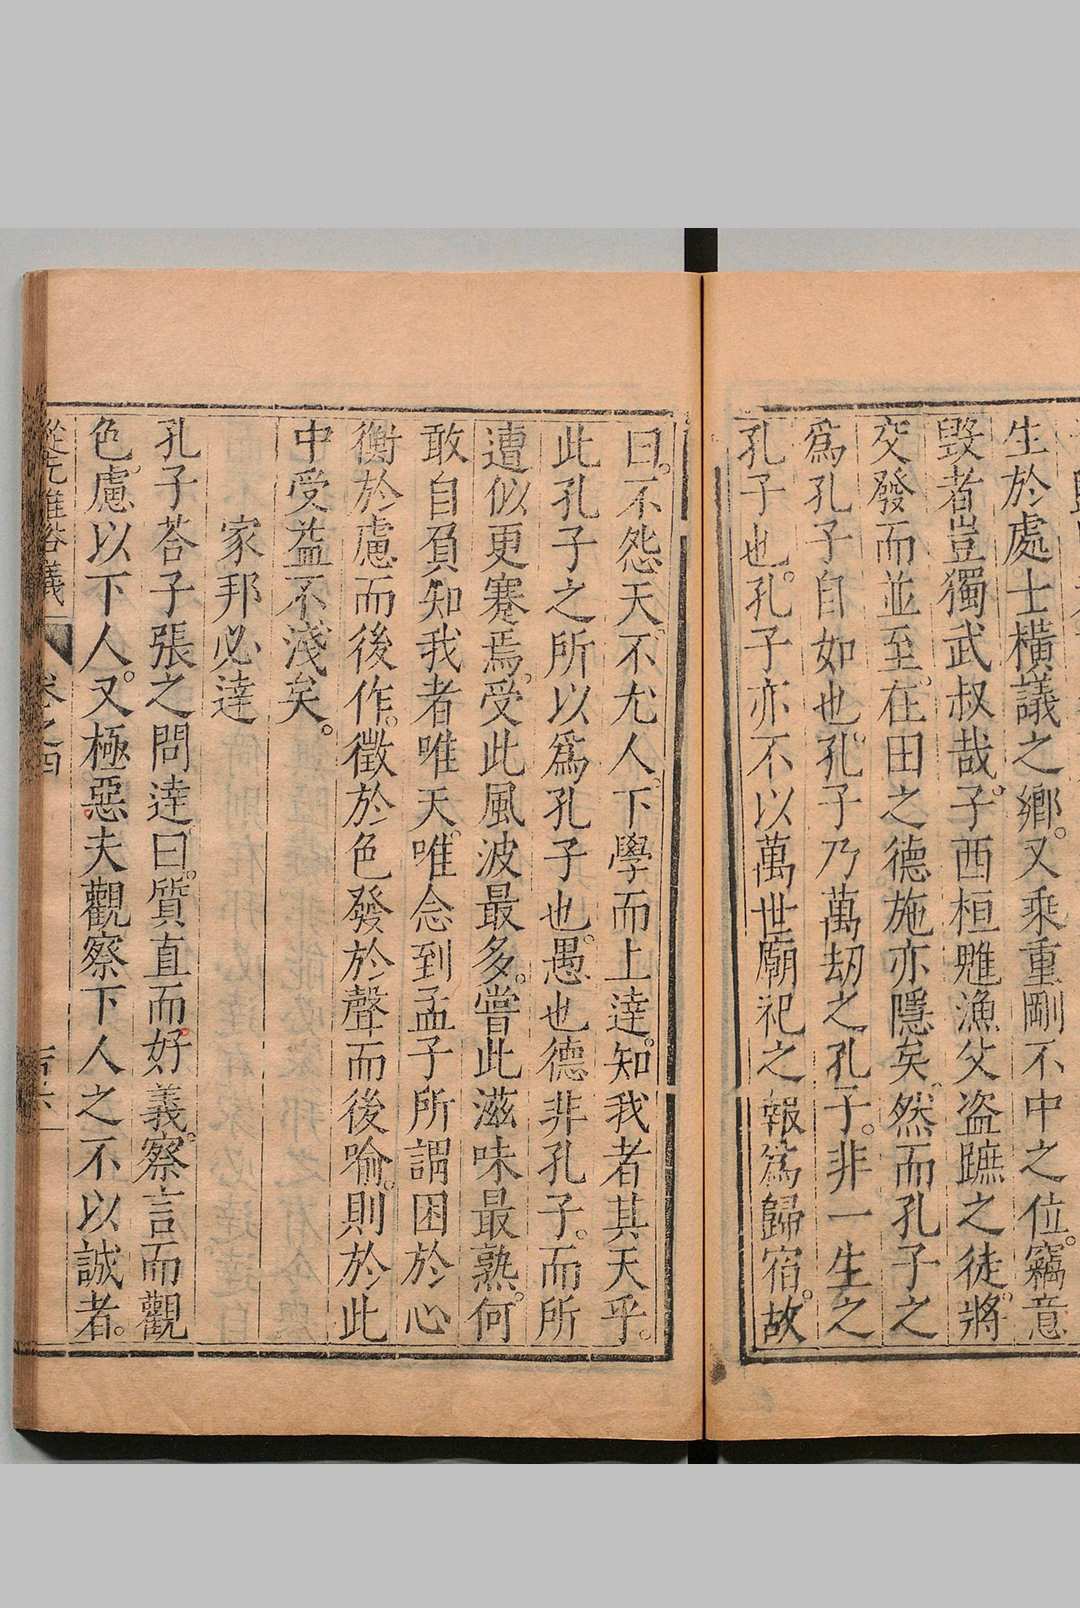 生於處士橫議之鄉。又乘重剛不中之位。竊意
毀者豈獨武叔哉。子西桓魋漁父盜蹠之徒。將
交發而並至。在田之德施亦隱矣。然而孔子之
爲孔子自如也。孔子乃萬劫之孔子。非一生之
孔子也。孔子亦不以萬世廟祀之報爲歸宿。故
曰。不怨天。不尤人。下學而上達。知我者其天乎。
此孔子之所以爲孔子也。愚也德非孔子。而所
遭似更蹇焉。受此風波最多。嘗此滋味最熟。何
敢自負知我者唯天。唯念到孟子所謂困於心
衡於慮而後作。徵於色發於聲而後喻。則於此
中受益不淺矣。
家邦必達
孔子荅子張之問達曰。質直而好義。察言而觀
色。慮以下人。又極惡夫觀察下人之不以誠者。
從先維俗議 卷之四